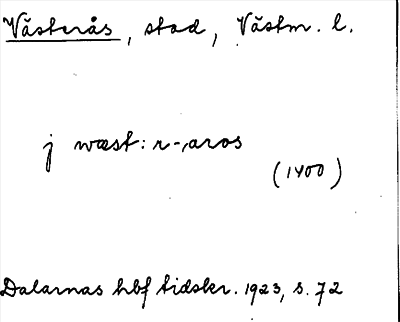 Västerås, stad, Västm. l.
j wæst:r-,aros
(1400)
Dalarnas hbf tidskr. 1923, s. 72